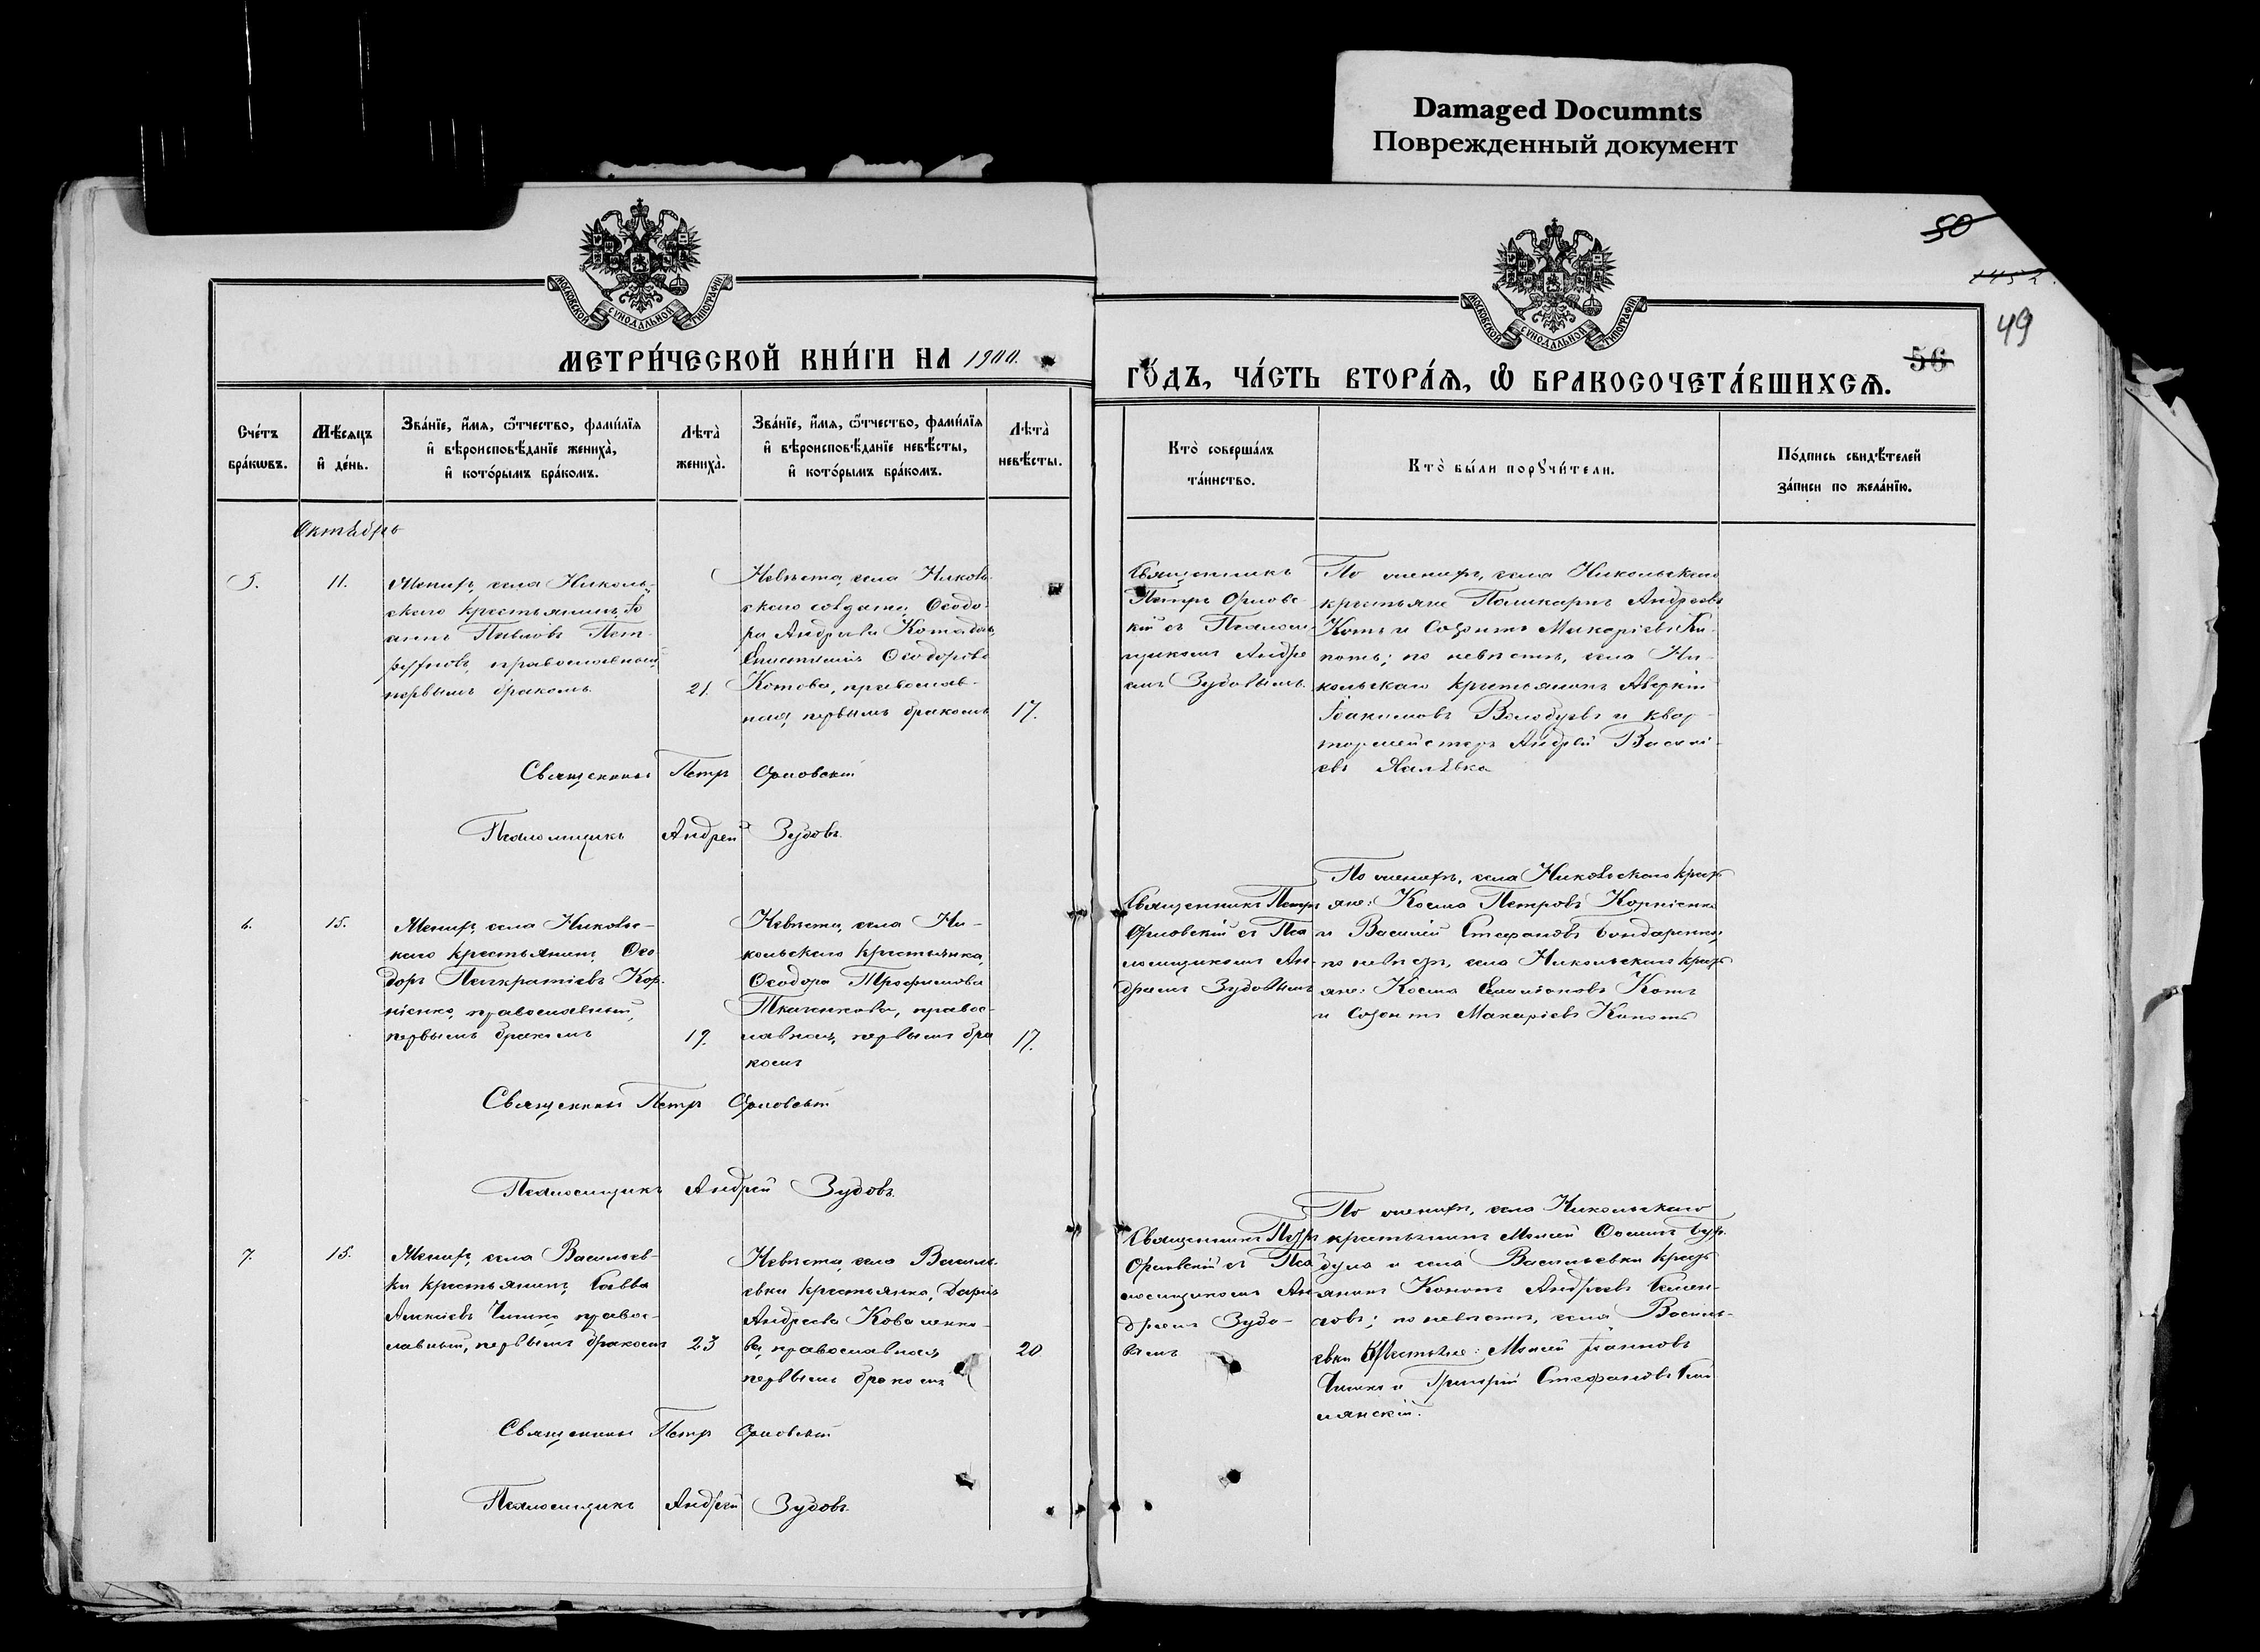 Damaged Documnts
Поврежденный документ
50
1452.
49
56
МОСКОВСКОЙ СѴНОДАЛЬНОЙ ТИПОГРАФІИ
МОСКОВСКОЙ СѴНОДАЛЬНОЙ ТИПОГРАФІИ
МЕТРИ́ЧЕСКОЙ КНИ́ГИ НА 1900.
ГО́ДЪ, ЧА́СТЬ ВТОРА́Я, Ѽ БРАКОСОЧЕТА́ВШИХСѦ.
Сче́тъ бра́кѡвъ.
Мѣ́сяцъ и҆ де́нь.
Зва́нїе, и҆́мя, ѻ҆́тчество, фами́лїя
и҆ вѣроисповѣ́данїе жениха̀,
и҆ кото́рымъ бра́комъ.
Лѣта̀ жениха̀.
Зва́нїе, и҆́мя, ѻ҆́тчество, фами́лїя
и҆ вѣроисповѣ́данїе невѣ́сты,
и҆ кото́рымъ бра́комъ.
Лѣта̀ невѣ́сты.
Кто̀ соверша́лъ
та́инство.
Кто̀ бы́ли порꙋчи́тели.
По́дпись свидѣ́телей
за́писи по жела́нїю.
Октябрь
5.
11.
Женихъ, села Николь-
скаго крестьянинъ, Іо
аннъ Павловъ
православный,
первымъ бракомъ.
21.
Невѣста, села Николь-
скаго солдата Ѳеодо-
ра Андреева
Ѳеодорова
Котова, православ-
ная, первымъ бракомъ
17.
Священникъ
Петръ Орловс-
кій съ Псалом-
щикомъ Андре
емъ Зудовымъ.
По женихѣ, села Никольскаго
крестьяне Поликарпъ Андреевъ
Котъ и Созонтъ Макаріевъ Ки-
потъ; по невѣстѣ, села Ни-
кольскаго крестьянинъ Аверкій
Іоакимовъ Володуевъ и квар-
тирмейстеръ Андрей Василі-
евъ Халявка
Священникъ Петръ Орловскій
Псаломщикъ Андрей Зудовъ.
6.
15.
Женихъ, села Николь-
скаго крестьянинъ, Ѳео
доръ Панкратіевъ Кор-
ніенко, православный,
первымъ бракомъ
19.
Невѣста, села Ни-
кольскаго крестьянка,
Ѳеодора Трофимова
Ткаченкова, правос-
лавная, первымъ бра
комъ
17.
Священникъ Петръ
Орловскій съ Пса
ломщикомъ Ан-
дреемъ Зудовымъ
По женихѣ, села Никольскаго крестья
яне: Косма Петровъ Корніенко
и Василій Стефановъ Бондаренко;
по невѣстѣ, села Никольскаго крестья
яне: Косма Симеоновъ Котъ
и Созонтъ Макаріевъ Кипотъ
Священникъ Петръ Орловскій
Псаломщикъ Андрей Зудовъ.
7.
15.
Женихъ, села Васильев-
ки крестьянинъ, Савва
Алексіевъ Чишко правос-
лавный, первымъ бракомъ
23
Невѣста, села Василь-
евки крестьянка, Дарія
Андреева Коваленко-
ва, православная,
первымъ бракомъ
20
Священникъ Петръ
Орловскій съ Пса
ломщикомъ Ан-
дреемъ Зудо-
вымъ
По женихѣ, села Никольскаго
крестьянинъ Моисей Ѳоминъ Бур-
дула и села Васильевки крестья
янинъ Кононъ Андреевъ Семен-
совъ; по невѣстѣ, села Василь-
евки крестьяне: Моисей Іоанновъ
Чишко и Григорій Стефановъ
Священникъ Петръ Орловскій
Псаломщикъ Андрей Зудовъ.